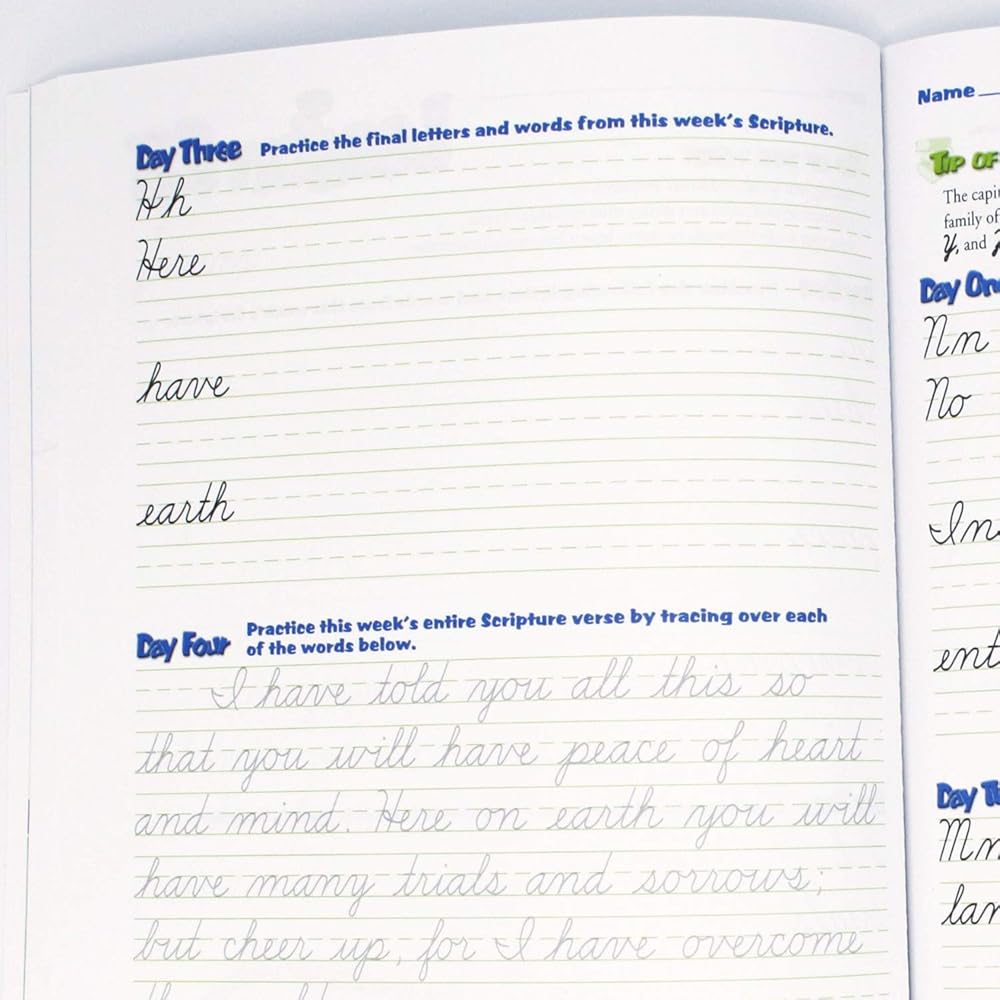 Day Three Practice the final letters and words from this week's Scripture.
Hh
Here
have
earth
Day Four Practice this week's entire Scripture verse by tracing over each
of the words below.
I have told you all this so
that you will have peace of heart
and mind. Here on earth you will
have many trials and sorrows;
but cheer up, for I have overcome
Name
Tip of
The
family of
Y, and
Day One
Nn
No
Day